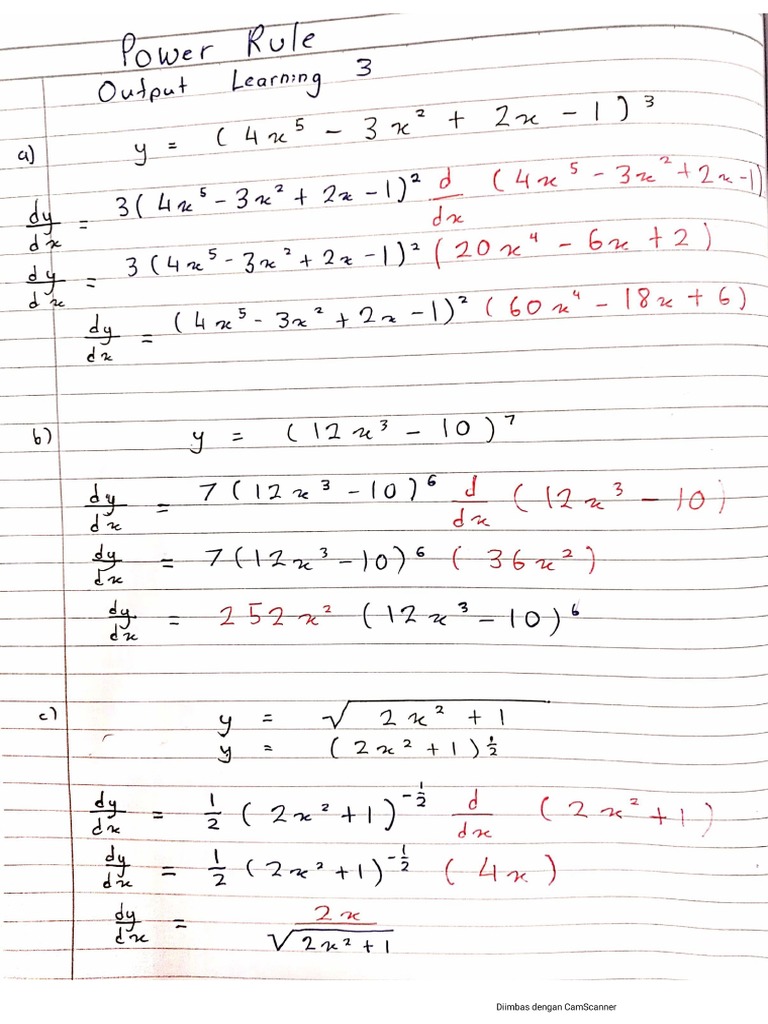 Power Rule
Output Learning 3
a) y = (4x⁵ - 3x² + 2x - 1)³
dy/dx = 3(4x⁵ - 3x² + 2x - 1)² d/dx (4x⁵ - 3x² + 2x - 1)
dy/dx = 3(4x⁵ - 3x² + 2x - 1)² (20x⁴ - 6x + 2)
dy/dx = (4x⁵ - 3x² + 2x - 1)² (60x⁴ - 18x + 6)
b) y = (12x³ - 10)⁷
dy/dx = 7(12x³ - 10)⁶ d/dx (12x³ - 10)
dy/dx = 7(12x³ - 10)⁶ (36x²)
dy/dx = 252x² (12x³ - 10)⁶
c) y = √(2x² + 1)
y = (2x² + 1)^(1/2)
dy/dx = 1/2 (2x² + 1)^(-1/2) d/dx (2x² + 1)
dy/dx = 1/2 (2x² + 1)^(-1/2) (4x)
dy/dx = 2x/√(2x² + 1)
Diimbas dengan CamScanner